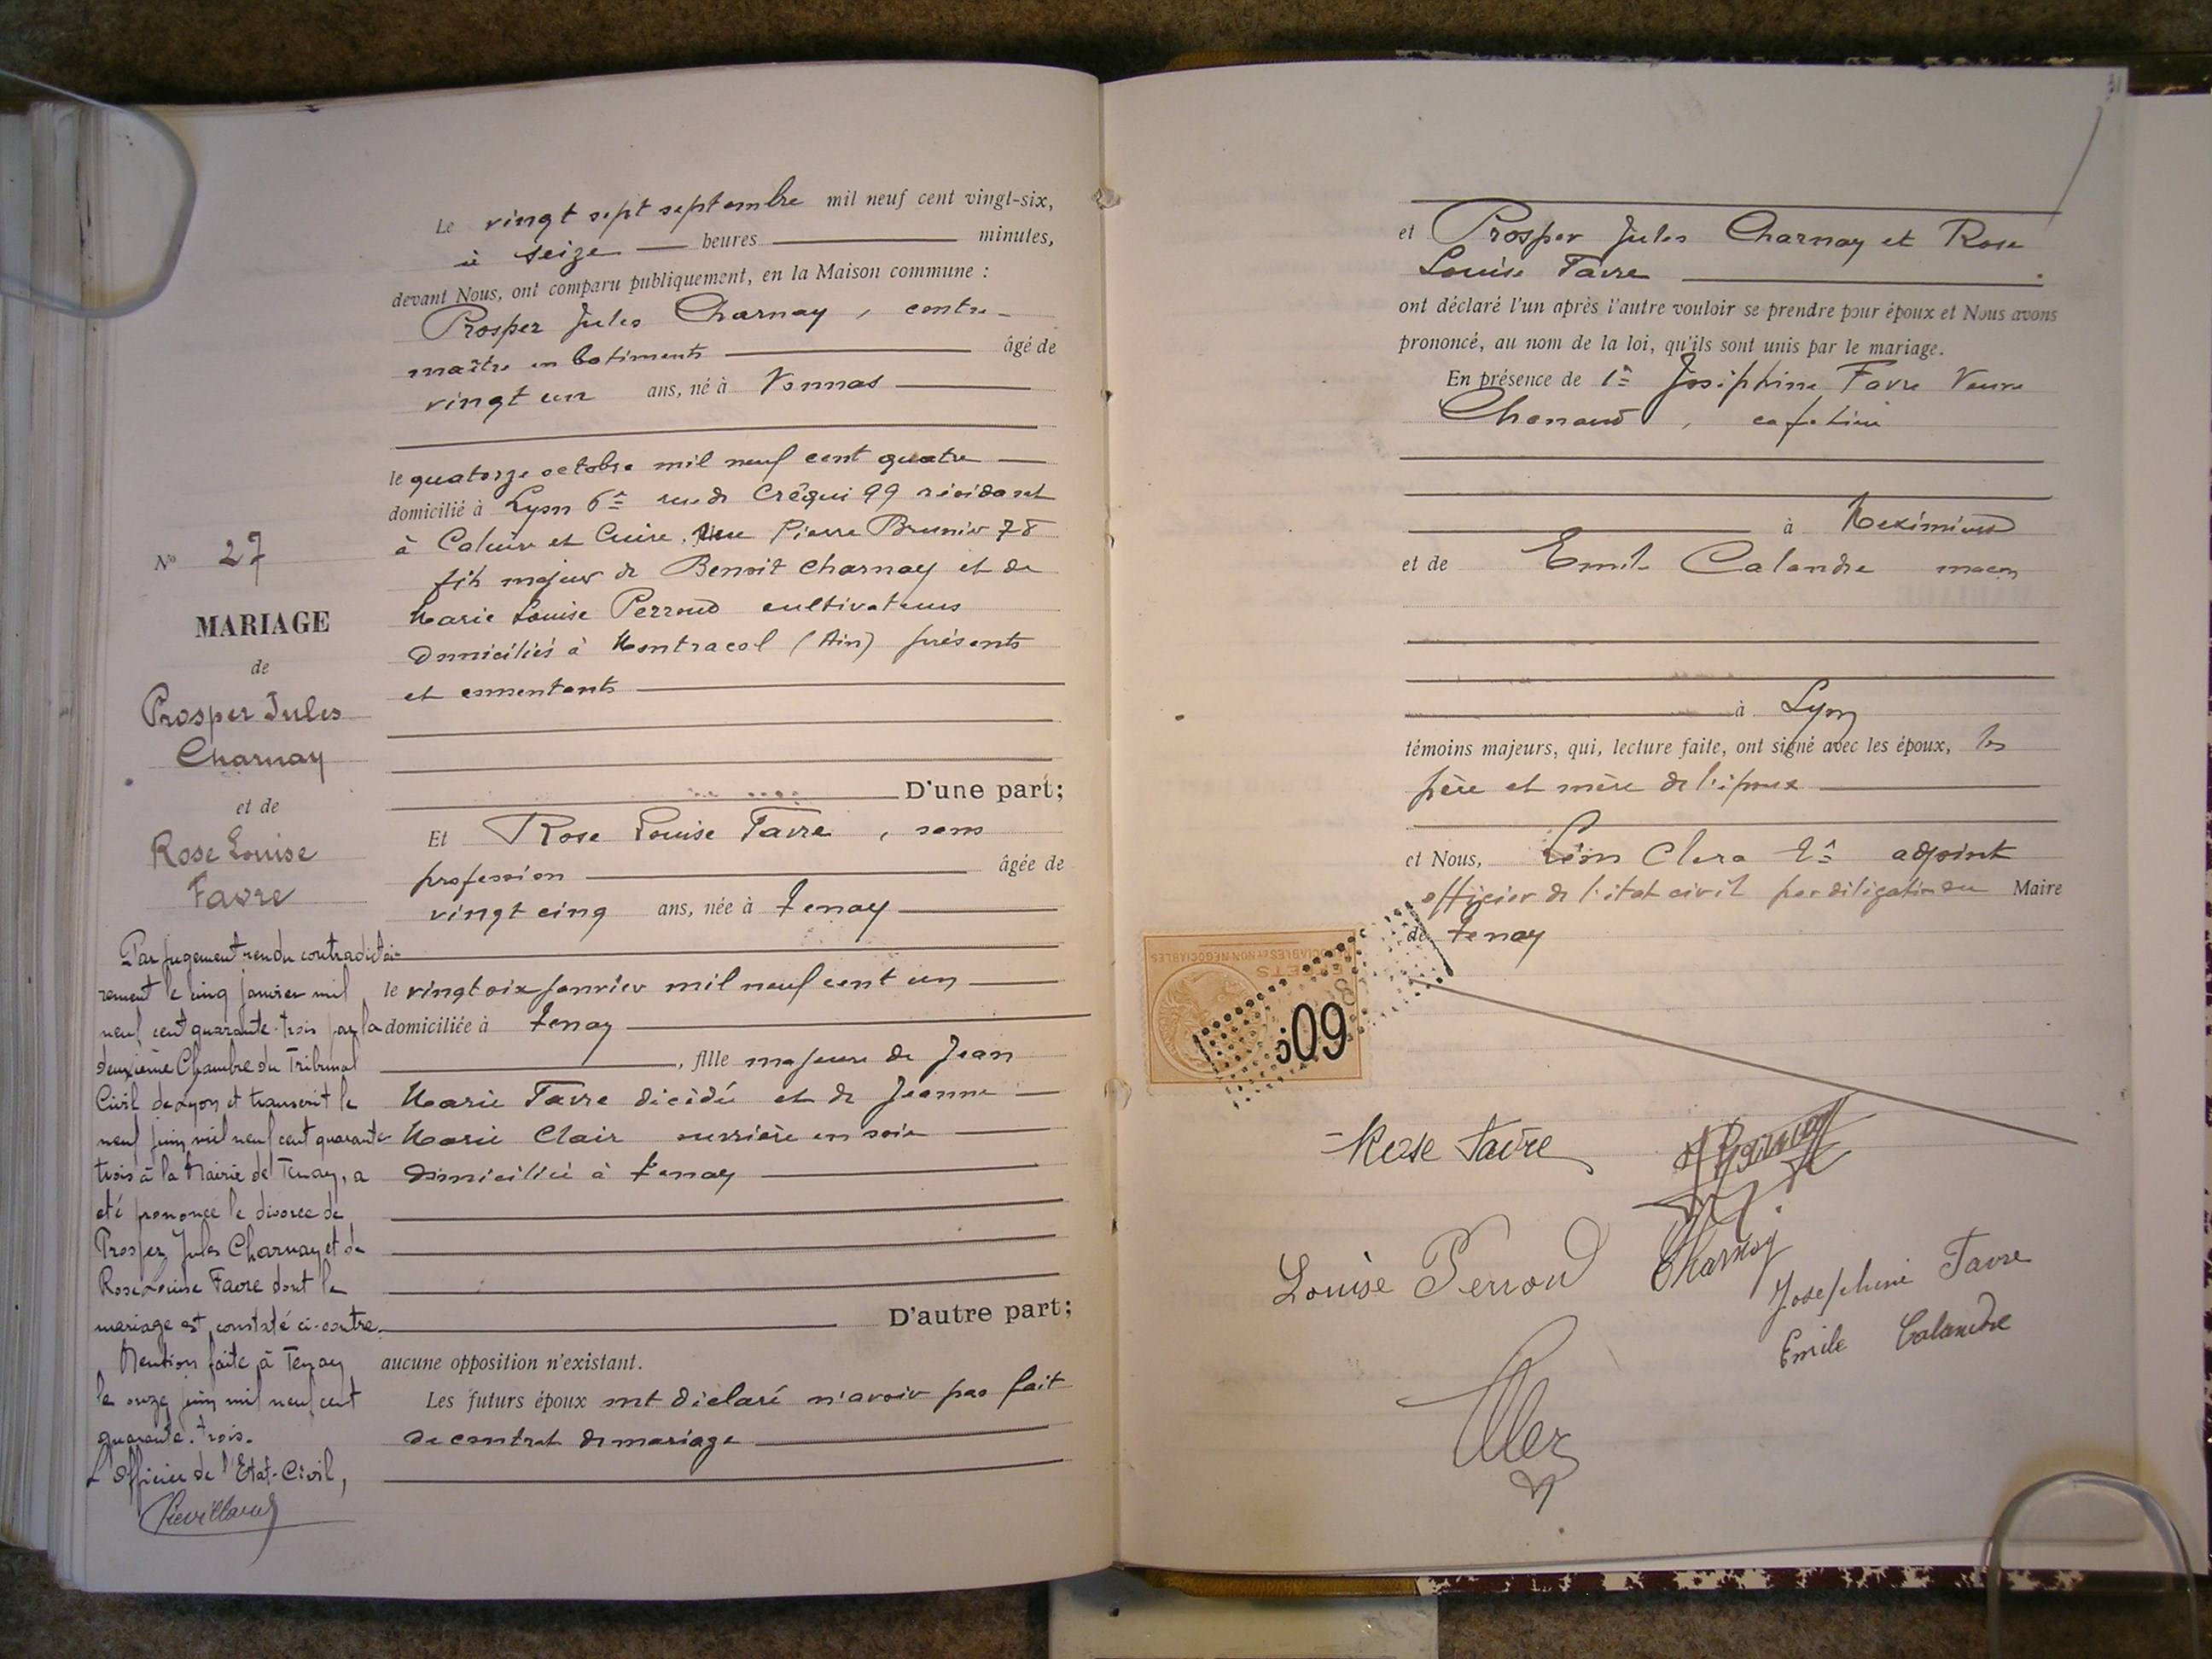 N° 27
MARIAGE
de
Prosper Jules
Charnay
et de
Rose Louise
Favre
Par jugement rendu contradictoi-
rement le cinq janvier mil
neuf cent quarante-trois par la
deuxième Chambre du Tribunal
Civil de Lyon et transcrit le
neuf juin mil neuf cent quarante
trois à la Mairie de Tenay, a
été prononcé le divorce de
Prosper Jules Charnay et de
Rose Louise Favre dont le
mariage est constaté ci-contre.
Mention faite à Tenay
le onze juin mil neuf cent
quarante-trois.
L'Officier de l'Etat-Civil,
Le vingt sept septembre mil neuf cent vingt-six,
à seize heures minutes,
devant Nous, ont comparu publiquement, en la Maison commune :
Prosper Jules Charnay, contre-
maître en batiments âgé de
vingt un ans, né à Vonnas
le quatorze octobre mil neuf cent quatre
domicilié à Lyon 6e rue de Créqui 99 résidant
à Caluire et Cuire, rue Pierre Brunier 78
fils majeur de Benoit Charnay et de
Marie Louise Perroud cultivateurs
domiciliés à Montracol (Ain) présents
et consentants
D'une part;
Et Rose Louise Favre, sans
profession âgée de
vingt cinq ans, née à Tenay
le vingt six janvier mil neuf cent un
domiciliée à Tenay
, fille majeure de Jean
Marie Favre décédé et de Jeanne
Marie Clair ouvrière en soie
domiciliée à Tenay
D'autre part;
aucune opposition n'existant.
Les futurs époux ont déclaré n'avoir pas fait
de contrat de mariage
31
et Prosper Jules Charnay et Rose
Louise Favre
ont déclaré l'un après l'autre vouloir se prendre pour époux et Nous avons
prononcé, au nom de la loi, qu'ils sont unis par le mariage.
En présence de 1° Joséphine Favre Veuve
Chenaud, cafetière
à Meximieux
et de Emile Calandre maçon
à Lyon
témoins majeurs, qui, lecture faite, ont signé avec les époux, les
père et mère de l'époux
et Nous, Léon Clerc 1er adjoint
officier de l'état civil par délégation du Maire
de Tenay
EFFETS
NÉGOCIABLES ET NON NÉGOCIABLES
60c
Rose Favre
Louise Perroud
Charnay
Josephine Favre
Emile Calandre